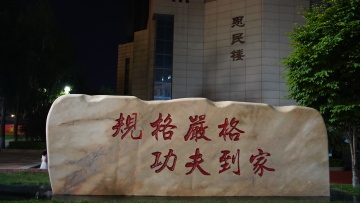 逸夫楼
规格严格
功夫到家